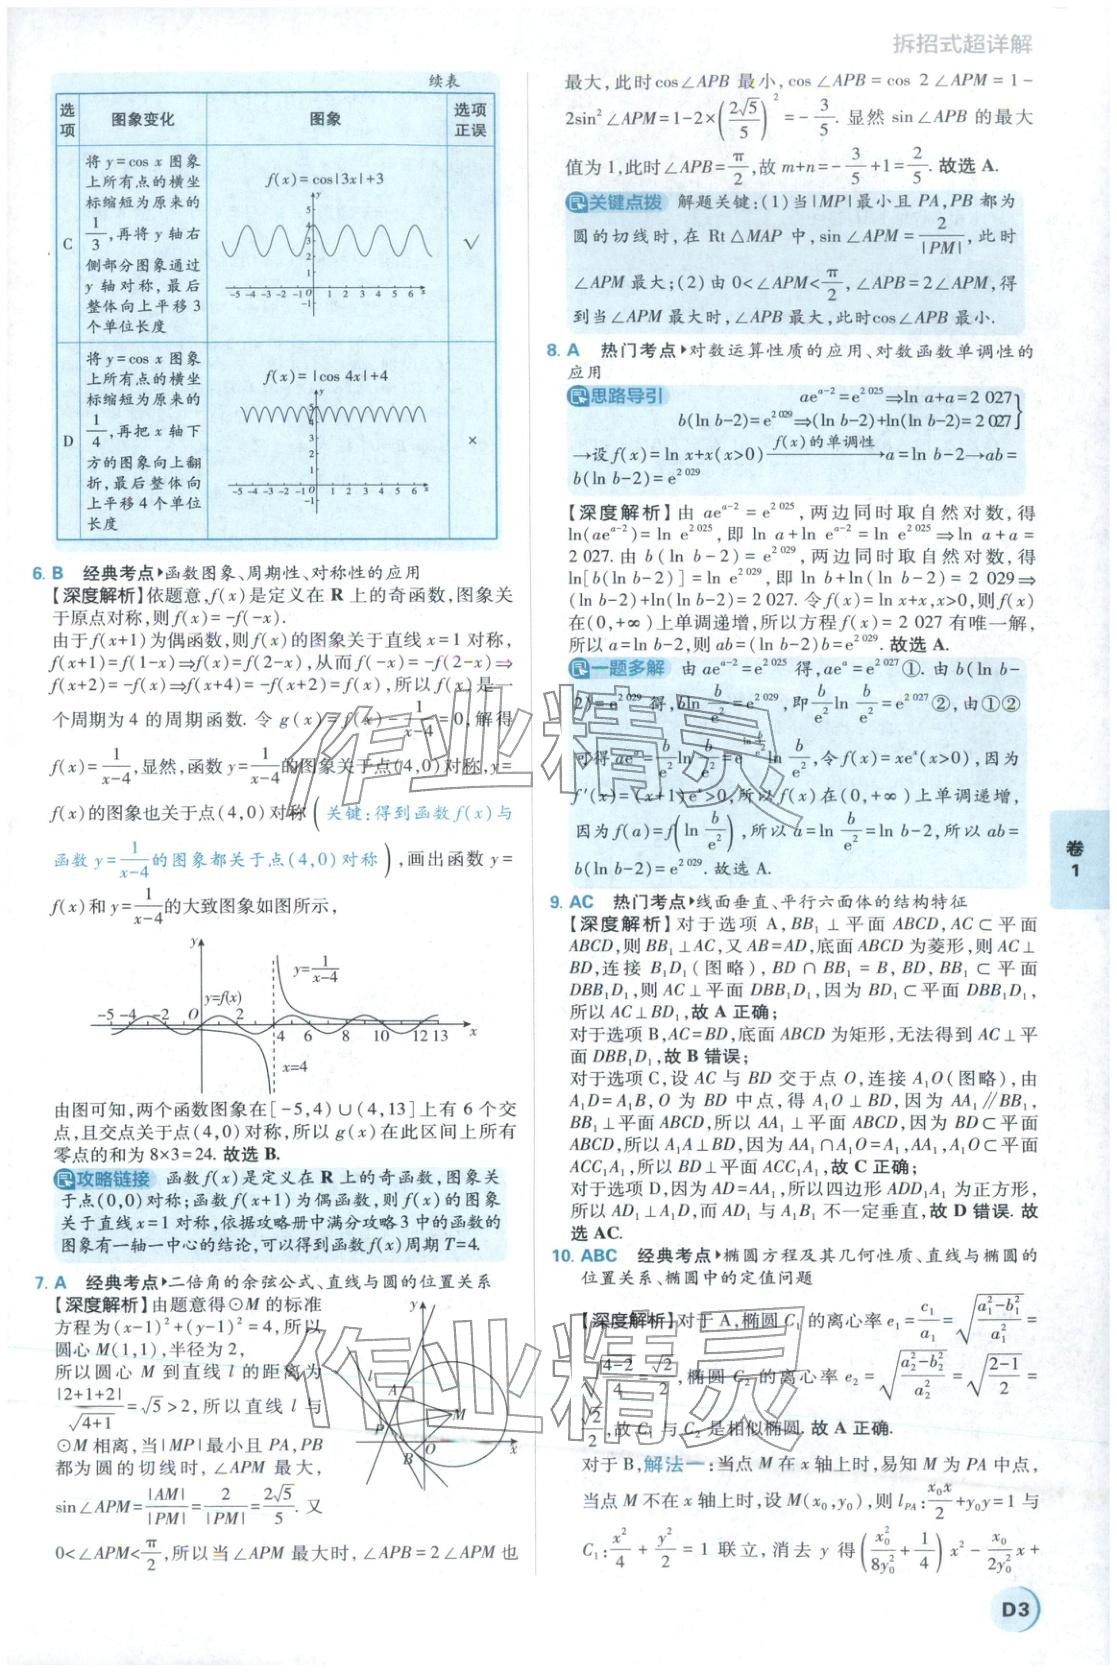 拆招式超详解
续表
选项 图象变化 图象 选项正误
C
将 y=cos x 图象
上所有点的横坐
标缩短为原来的
1/3,再将 y 轴右
侧部分图象通过
y 轴对称,最后
整体向上平移 3
个单位长度
f(x)=cos|3x|+3
√
D
将 y=cos x 图象
上所有点的横坐
标缩短为原来的
1/4,再把 x 轴下
方的图象向上翻
折,最后整体向
上平移 4 个单位
长度
f(x)=|cos 4x|+4
×
6. B 经典考点▸函数图象、周期性、对称性的应用
【深度解析】依题意,f(x)是定义在 R 上的奇函数,图象关
于原点对称,则 f(x)=-f(-x).
由于 f(x+1)为偶函数,则 f(x)的图象关于直线 x=1 对称,
f(x+1)=f(1-x)⇒f(x)=f(2-x),从而 f(-x)=-f(2-x)⇒
f(x+2)=-f(x)⇒f(x+4)=-f(x+2)=f(x),所以 f(x)是一
个周期为 4 的周期函数. 令 g(x)=f(x)-1/(x-4)=0,解得
f(x)=1/(x-4),显然,函数 y=1/(x-4)的图象关于点(4,0)对称,y=
f(x)的图象也关于点(4,0)对称(关键:得到函数 f(x)与
函数 y=1/(x-4)的图象都关于点(4,0)对称),画出函数 y=
f(x)和 y=1/(x-4)的大致图象如图所示,
y
y=1/(x-4)
y=f(x)
-5 -4 -2 O 2 4 6 8 10 12 13 x
x=4
由图可知,两个函数图象在[-5,4)∪(4,13]上有 6 个交
点,且交点关于点(4,0)对称,所以 g(x)在此区间上所有
零点的和为 8×3=24. 故选 B.
攻略链接 函数 f(x)是定义在 R 上的奇函数,图象关
于点(0,0)对称;函数 f(x+1)为偶函数,则 f(x)的图象
关于直线 x=1 对称,依据攻略册中满分攻略 3 中的函数的
图象有一轴一中心的结论,可以得到函数 f(x)周期 T=4.
7. A 经典考点▸二倍角的余弦公式、直线与圆的位置关系
【深度解析】由题意得⊙M 的标准
方程为(x-1)²+(y-1)²=4,所以
圆心 M(1,1),半径为 2,
所以圆心 M 到直线 l 的距离为
|2+1+2|/√(4+1)=√5>2,所以直线 l 与
⊙M 相离,当|MP|最小且 PA,PB
都为圆的切线时,∠APM 最大,
sin∠APM=|AM|/|PM|=2/|PM|=2√5/5. 又
0<∠APM<π/2,所以当∠APM 最大时,∠APB=2∠APM 也
y l A M P B O x
最大,此时 cos∠APB 最小,cos∠APB=cos 2∠APM=1-
2sin²∠APM=1-2×(2√5/5)²=-3/5. 显然 sin∠APB 的最大
值为 1,此时∠APB=π/2,故 m+n=-3/5+1=2/5. 故选 A.
关键点拨 解题关键:(1)当|MP|最小且 PA,PB 都为
圆的切线时,在 Rt△MAP 中,sin∠APM=2/|PM|,此时
∠APM 最大;(2)由 0<∠APM<π/2,∠APB=2∠APM,得
到当∠APM 最大时,∠APB 最大,此时cos∠APB 最小.
8. A 热门考点▸对数运算性质的应用、对数函数单调性的
应用
思路导引 ae^(a-2)=e^2 025⇒ln a+a=2 027
b(ln b-2)=e^2 029⇒(ln b-2)+ln(ln b-2)=2 027}
→设 f(x)=ln x+x(x>0) f(x)的单调性→a=ln b-2→ab=
b(ln b-2)=e^2 029
【深度解析】由 ae^(a-2)=e^2 025,两边同时取自然对数,得
ln(ae^(a-2))=ln e^2 025,即 ln a+ln e^(a-2)=ln e^2 025⇒ln a+a=
2 027. 由 b(ln b-2)=e^2 029,两边同时取自然对数,得
ln[b(ln b-2)]=ln e^2 029,即 ln b+ln(ln b-2)=2 029⇒
(ln b-2)+ln(ln b-2)=2 027. 令 f(x)=ln x+x,x>0,则 f(x)
在(0,+∞)上单调递增,所以方程 f(x)=2 027 有唯一解,
所以 a=ln b-2,则 ab=(ln b-2)b=e^2 029. 故选 A.
一题多解 由 ae^(a-2)=e^2 025 得,ae^a=e^2 027①. 由 b(ln b-
2)=e^2 029 得,bln b/e²=e^2 029,即 b/e² ln b/e²=e^2 027②,由①②
可得 ae^a=b/e² ln b/e²=e^(ln b/e²) ln b/e²,令 f(x)=xe^x(x>0),因为
f′(x)=(x+1)e^x>0,所以 f(x)在(0,+∞)上单调递增,
因为 f(a)=f(ln b/e²),所以 a=ln b/e²=ln b-2,所以 ab=
b(ln b-2)=e^2 029. 故选 A.
9. AC 热门考点▸线面垂直、平行六面体的结构特征
【深度解析】对于选项 A,BB₁⊥平面 ABCD,AC⊂平面
ABCD,则 BB₁⊥AC,又 AB=AD,底面 ABCD 为菱形,则 AC⊥
BD,连接 B₁D₁(图略),BD∩BB₁=B,BD,BB₁⊂平面
DBB₁D₁,则 AC⊥平面 DBB₁D₁,因为 BD₁⊂平面 DBB₁D₁,
所以 AC⊥BD₁,故 A 正确;
对于选项 B,AC=BD,底面 ABCD 为矩形,无法得到 AC⊥平
面 DBB₁D₁,故 B 错误;
对于选项 C,设 AC 与 BD 交于点 O,连接 A₁O(图略),由
A₁D=A₁B,O 为 BD 中点,得 A₁O⊥BD,因为 AA₁∥BB₁,
BB₁⊥平面 ABCD,所以 AA₁⊥平面 ABCD,因为 BD⊂平面
ABCD,所以 A₁A⊥BD,因为 AA₁∩A₁O=A₁,AA₁,A₁O⊂平面
ACC₁A₁,所以 BD⊥平面 ACC₁A₁,故 C 正确;
对于选项 D,因为 AD=AA₁,所以四边形 ADD₁A₁ 为正方形,
所以 AD₁⊥A₁D,而 AD₁ 与 A₁B₁ 不一定垂直,故 D 错误. 故
选 AC.
10. ABC 经典考点▸椭圆方程及其几何性质、直线与椭圆的
位置关系、椭圆中的定值问题
【深度解析】对于 A,椭圆 C₁ 的离心率 e₁=c₁/a₁=√((a₁²-b₁²)/a₁²)=
√((4-2)/4)=√2/2,椭圆 C₂ 的离心率 e₂=√((a₂²-b₂²)/a₂²)=√((2-1)/2)=
√2/2,故 C₁ 与 C₂ 是相似椭圆. 故 A 正确.
对于 B,解法一:当点 M 在 x 轴上时,易知 M 为 PA 中点,
当点 M 不在 x 轴上时,设 M(x₀,y₀),则 l_PA:x₀x/2+y₀y=1 与
C₁:x²/4+y²/2=1 联立,消去 y 得(x₀²/8y₀²+1/4)x²-x₀/2y₀² x+
卷1
D3
作业精灵
作业精灵